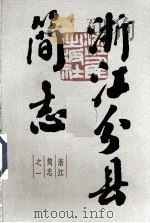 浙江分县
简志
浙江
简志
之一
www.mtoou.info